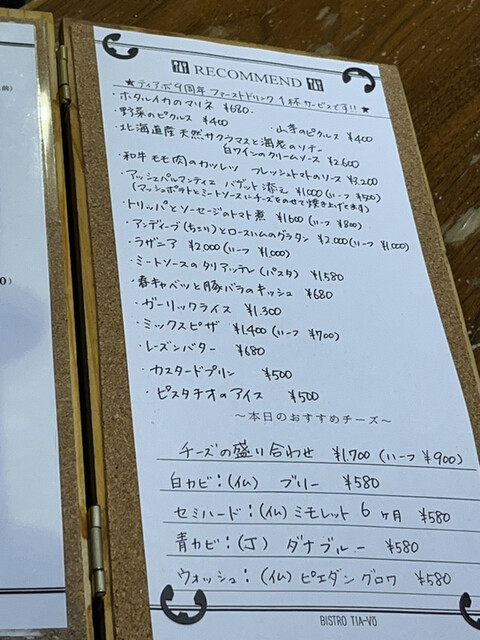 RECOMMEND
★ティアボ9周年 ファーストドリンク 1杯サービスです!! ★
・ホタルイカのマリネ ¥680.
・野菜のピクルス ¥400 ・山芋のピクルス ¥400
・北海道産 天然サクラマスと海老のソテー
白ワインのクリームソース ¥2.600
・和牛モモ肉のカツレツ フレッシュトマトのソース ¥3,200
・アッシェパルマンティエ バゲット添え ¥1000 (ハーフ ¥500)
(マッシュポテトとミートソースにチーズをのせて焼き上げてます)
・トリッパとソーセージのトマト煮 ¥1600 (ハーフ ¥800)
・アンディーブ(ちこり)とロースハムのグラタン ¥2.000 (ハーフ ¥1,000)
・ラザニア ¥2,000 (ハーフ ¥1,000)
・ミートソースのタリアッテレ (パスタ) ¥1,580
・春キャベツと豚バラのキッシュ ¥680
・ガーリックライス ¥1.300
・ミックスピザ ¥1,400 (ハーフ ¥700)
・レーズンバター ¥680
・カスタードプリン ¥500
・ピスタチオのアイス ¥500
～本日のおすすめチーズ～
チーズの盛り合わせ ¥1,700 (ハーフ ¥900)
白カビ:(仏) ブリー ¥580
セミハード:(仏) ミモレット 6ヶ月 ¥580
青カビ:(丁) ダナブルー ¥580
ウォッシュ:(仏) ピエダングロワ ¥580
BISTRO TIA-VO